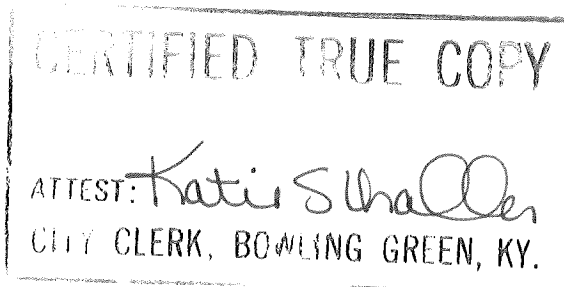 CERTIFIED TRUE COPY
ATTEST: Katie Schaller
CITY CLERK, BOWLING GREEN, KY.